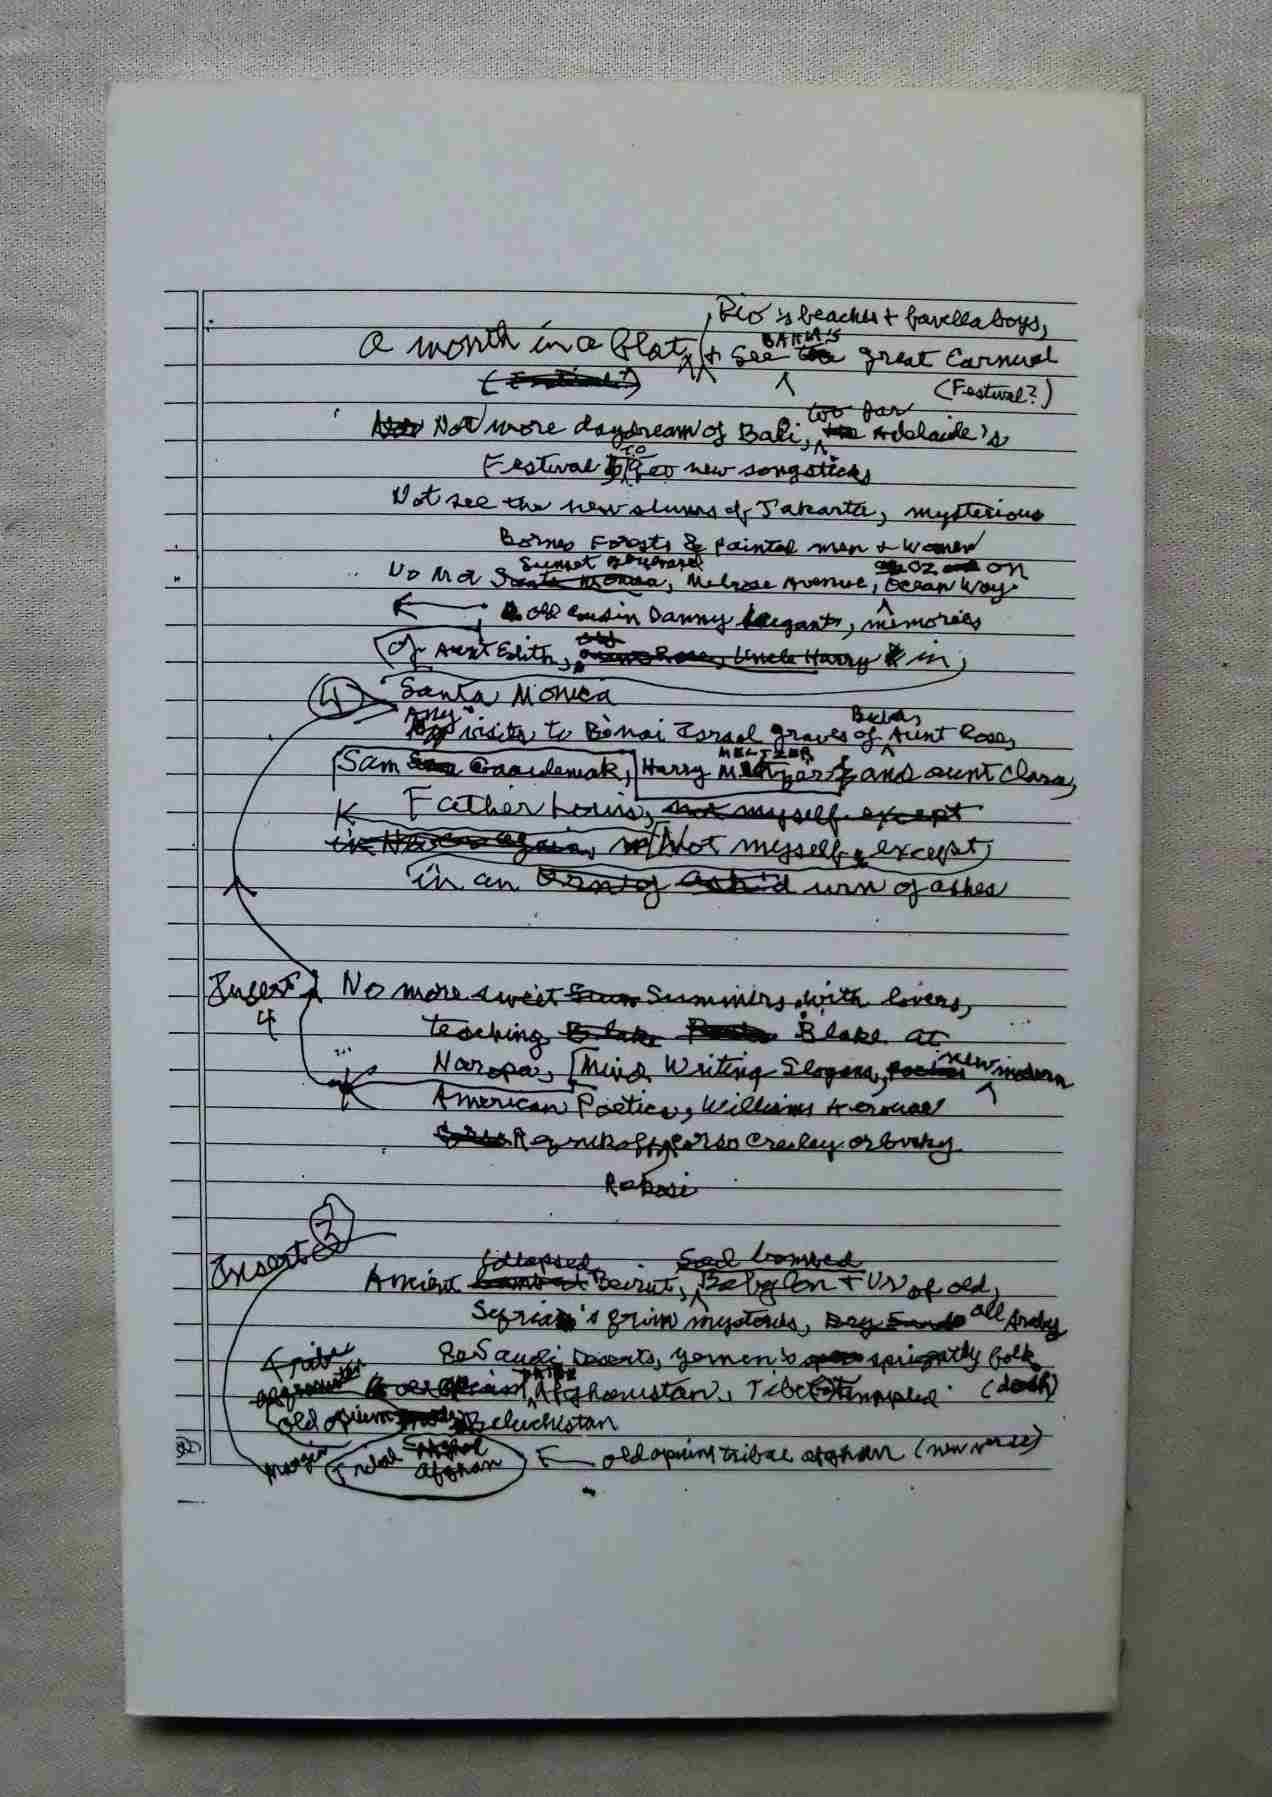 Rio's beaches & favella boys,
a month in a flat, & see BAHIA'S great Carnival
(Festival?)
Not more daydream of Bali, too far Adelaide's
Festival TO new songsticks
Not see the new slums of Jakarta, mysterious
Borneo Forests & painted men & women
No Mo Sunset Boulevard, Melrose Avenue, OZ on
Santa Monica, Ocean Way
old cousin Danny Leegant, memories
of Aunt Edith, Uncle Harry in
4 Santa Monica
Any visits to B'nai Israel graves of Buba, Aunt Rose,
Sam Harry MELTZER and aunt Clara,
Father Louis, not myself except
in again, Not myself except
in an urn of ashes
Insert 4 No more sweet Summers with lovers,
teaching Blake at
Naropa, Mind Writing Slogans, new modern
American Poetics, Williams Kerouac
Reznikoff Corso Creeley Orlovsky
Rakosi
Insert 3
Ancient collapsed Beirut, Sad bombed Babylon & Ur of old,
Syria's grim mysteries, all Araby
& Saudi Deserts, Yemen's sprightly folk,
Afghanistan, Tibet (dash)
old opium Beluchistan
margin Tribal Afghan old opium tribal afghan (new verse)